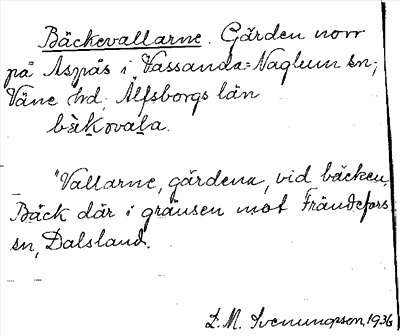 Bäckevallarne. Gärden norr
på Aspås i Vassanda=Naglum sn;
Väne hd, Älfsborgs län
bä̀kovaḷa.
"Vallarne, gärdena, vid bäcken,
Bäck där i gränsen mot Frändefors
sn, Dalsland.
L. M. Svenungsson, 1936